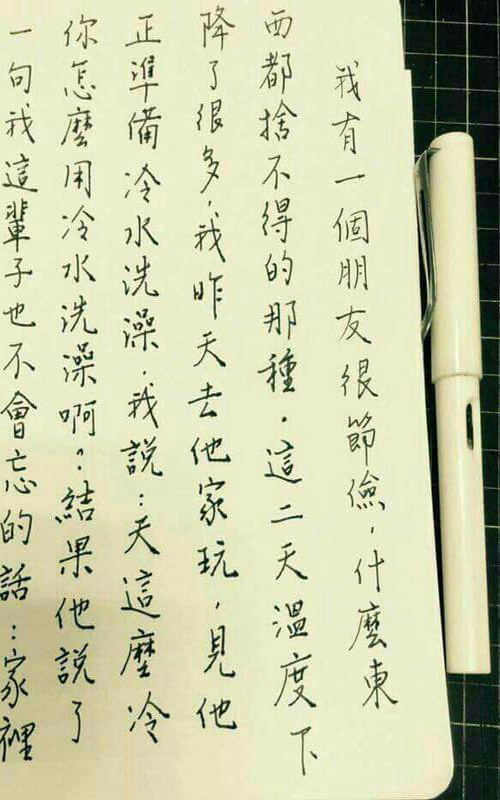 我有一個朋友很節儉，什麼東
西都捨不得的那種．這二天溫度下
降了很多，我昨天去他家玩，見他
正準備冷水洗澡．我說：天這麼冷
你怎麼用冷水洗澡啊？結果他說了
一句我這輩子也不會忘的話：家裡